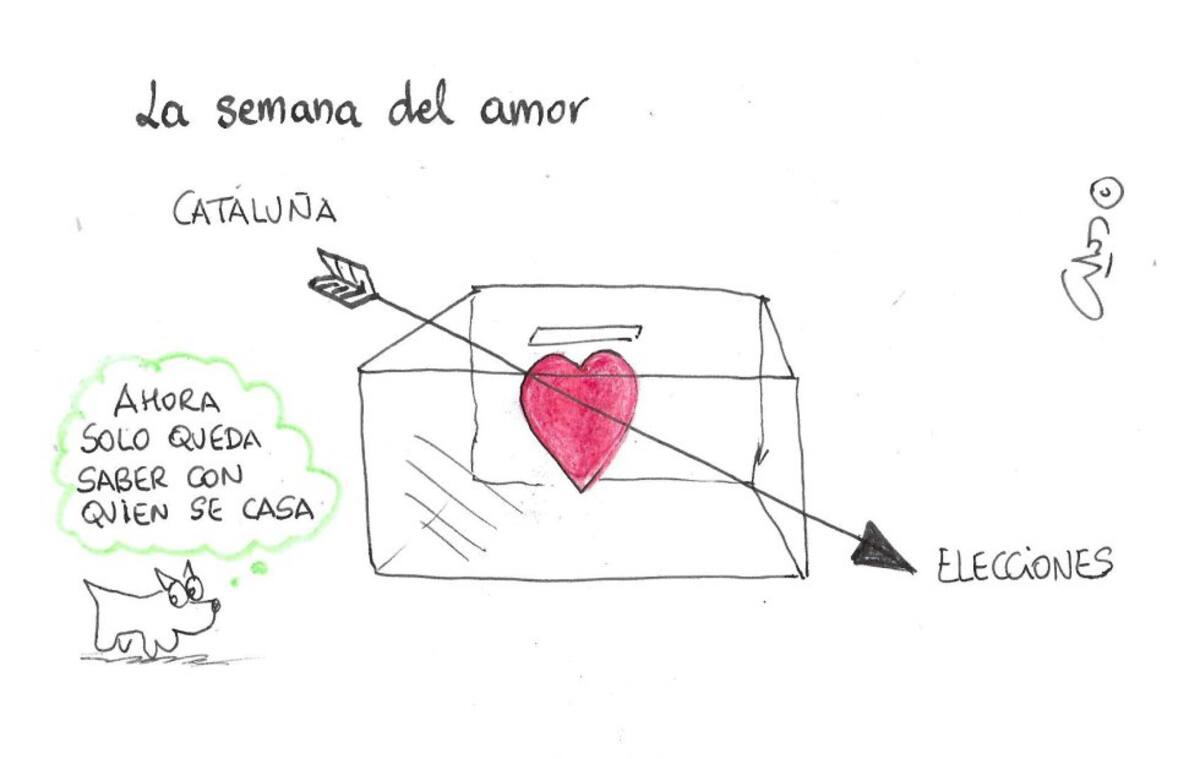 La semana del amor
CATALUÑA
AHORA
SOLO QUEDA
SABER CON
QUIEN SE CASA
ELECCIONES